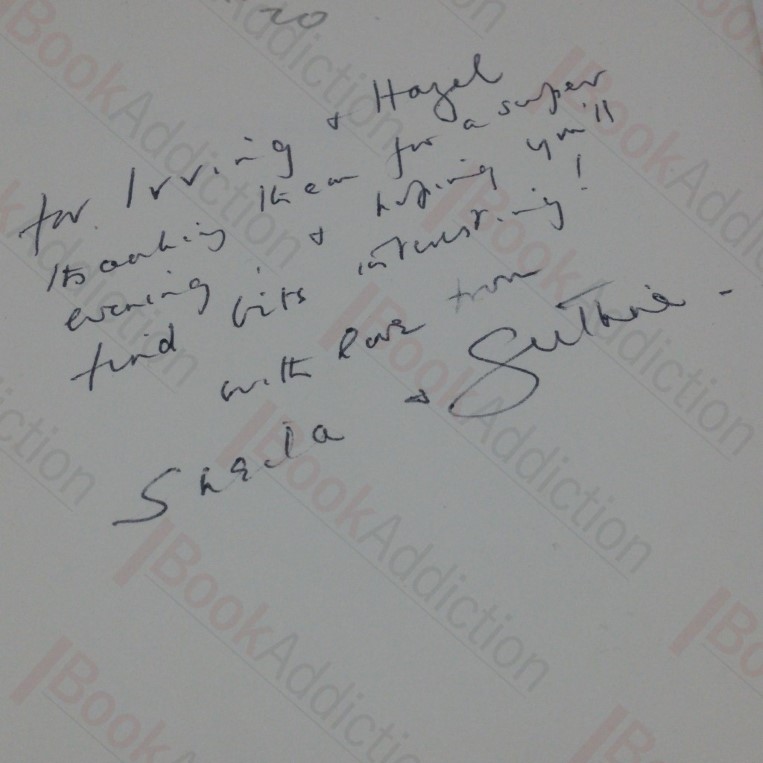 20
for Irving & Hazel
thanking them for a super
evening, & hoping you'll
find bits interesting!
with love from
Sheila & Guthrie -
BookAddiction